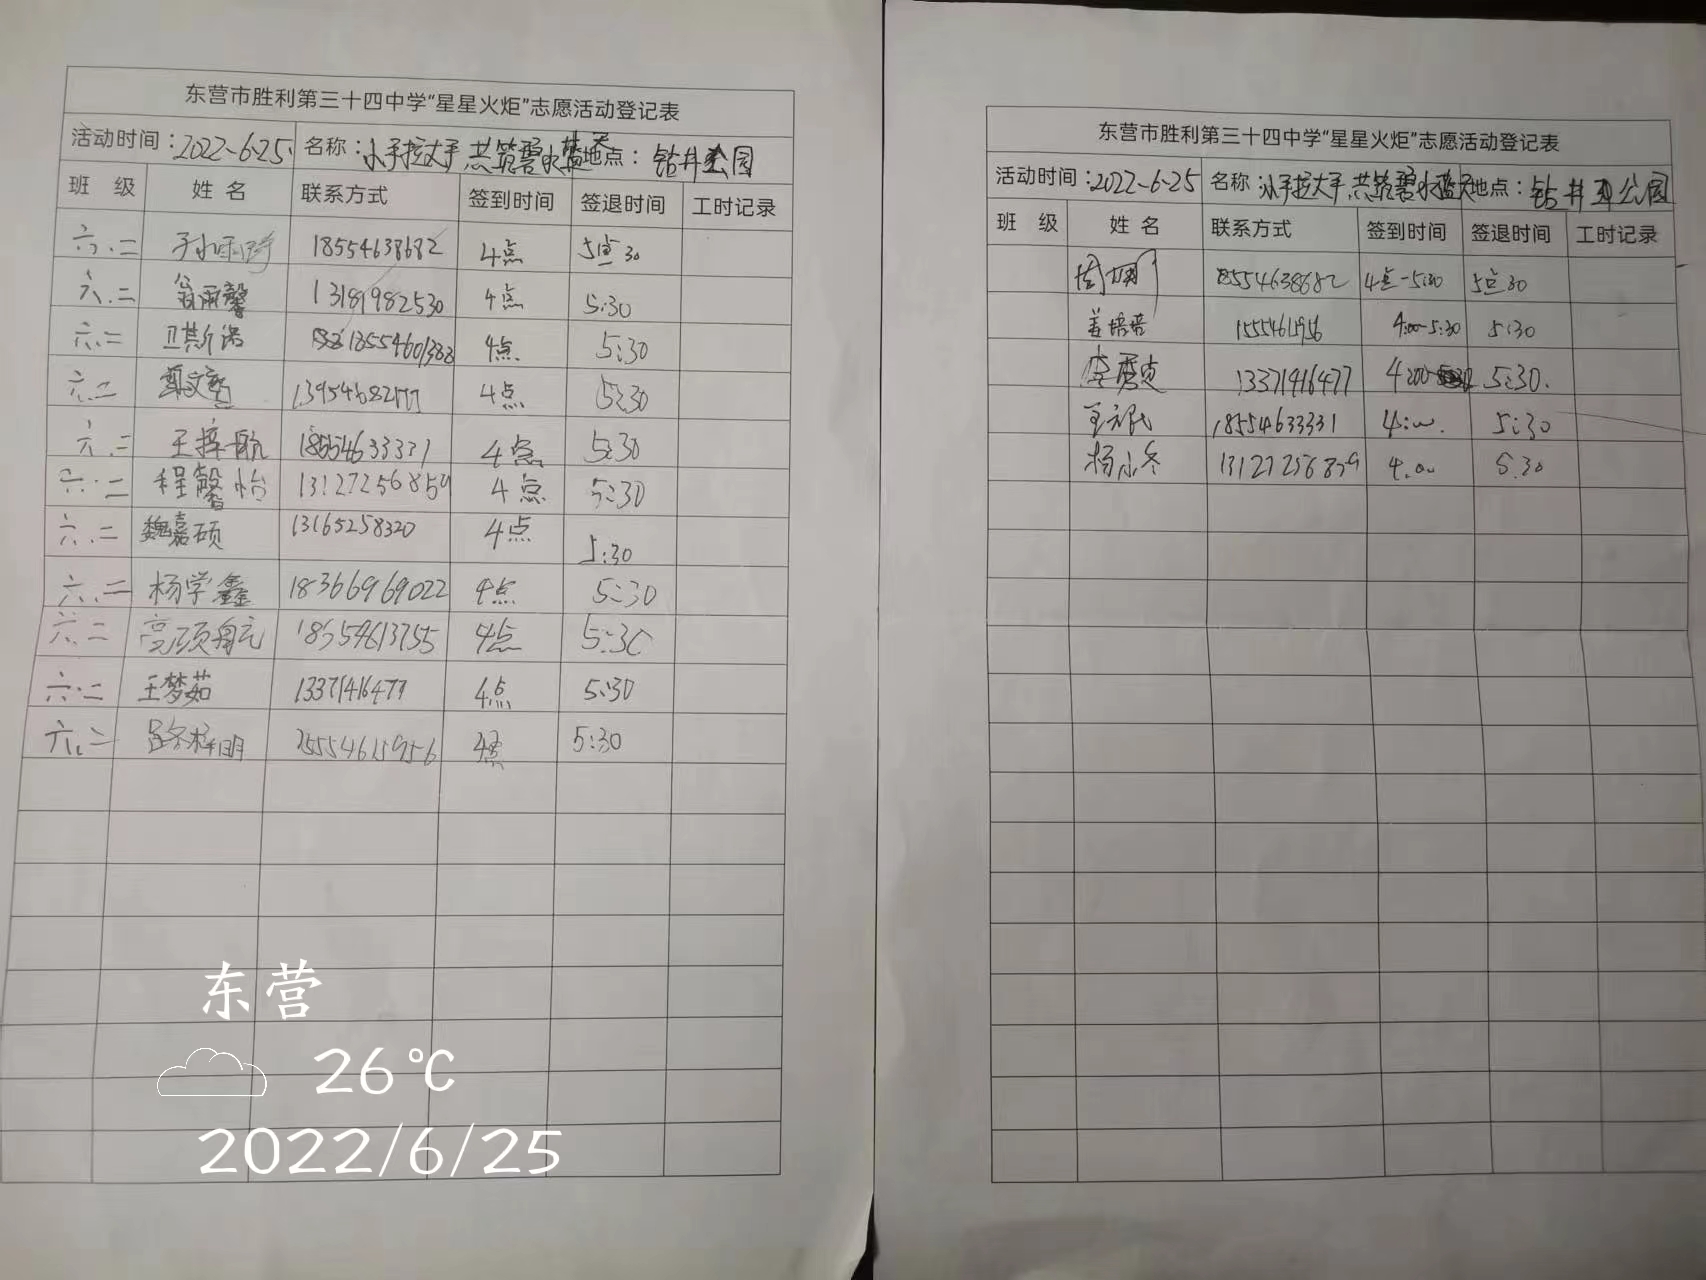 东营市胜利第三十四中学“星星火炬”志愿活动登记表
活动时间：2022-6-25 名称：小手拉大手 共筑碧水蓝天 地点：钻井公园
班 级 姓 名 联系方式 签到时间 签退时间 工时记录
六.二 18554638682 4点 5点30
六.二 翁雨馨 13181982530 4点 5:30
六.二 卫其诺 18554601388 4点 5:30
六.二 4点 5:30
六.二 王梓航 18554633331 4点 5:30
六.二 程馨怡 13127256859 4点 5:30
六.二 魏嘉硕 13165258320 4点 5:30
六.二 杨学鑫 18366969022 4点 5:30
六.二 18554613755 4点 5:30
六.二 王梦茹 13371416477 4点 5:30
六.二 15554615956 4点 5:30
东营
26℃
2022/6/25
东营市胜利第三十四中学“星星火炬”志愿活动登记表
活动时间：2022-6-25 名称：小手拉大手 共筑碧水蓝天 地点：钻井公园
班 级 姓 名 联系方式 签到时间 签退时间 工时记录
18554638682 4点-5:30 5点30
姜培培 4:00-5:30 5:30
13371416477 4:00 5:30.
18554633331 4:00. 5:30
杨小冬 13127256859 4.00 5.30